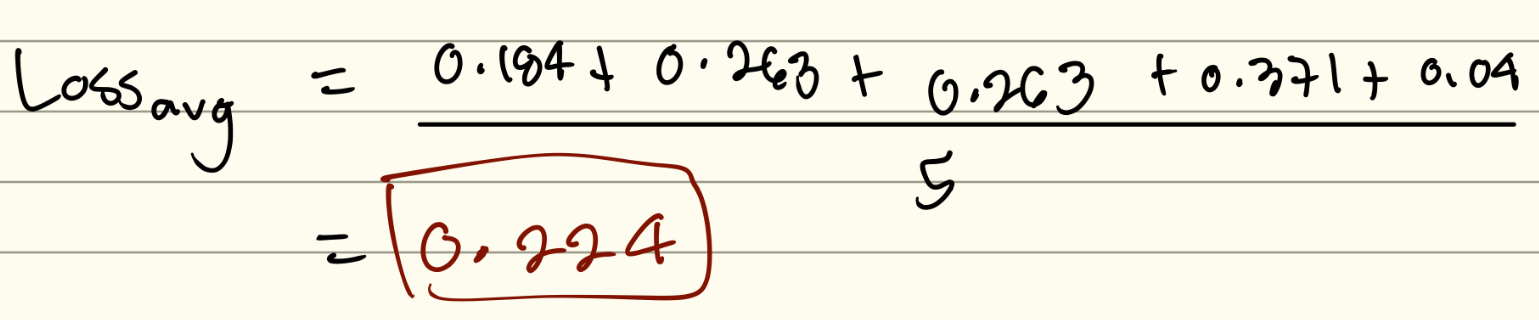 Loss avg = 0.184 + 0.263 + 0.263 + 0.371 + 0.04
5
= 0.224